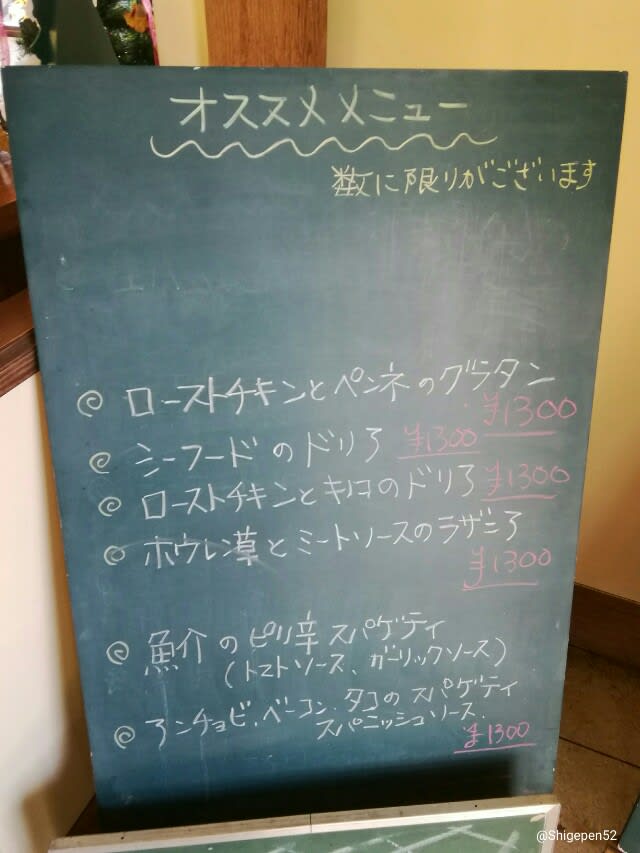 オススメメニュー
数に限りがございます
ローストチキンとペンネのグラタン
¥1300
シーフードのドリア ¥1300
ローストチキンとキノコのドリア ¥1300
ホウレン草とミートソースのラザニア
¥1300
魚介のピリ辛スパゲティ
(トマトソース、ガーリックソース)
アンチョビ、ベーコン、タコのスパゲティ
スパニッシュソース
¥1300
@Shigepen52